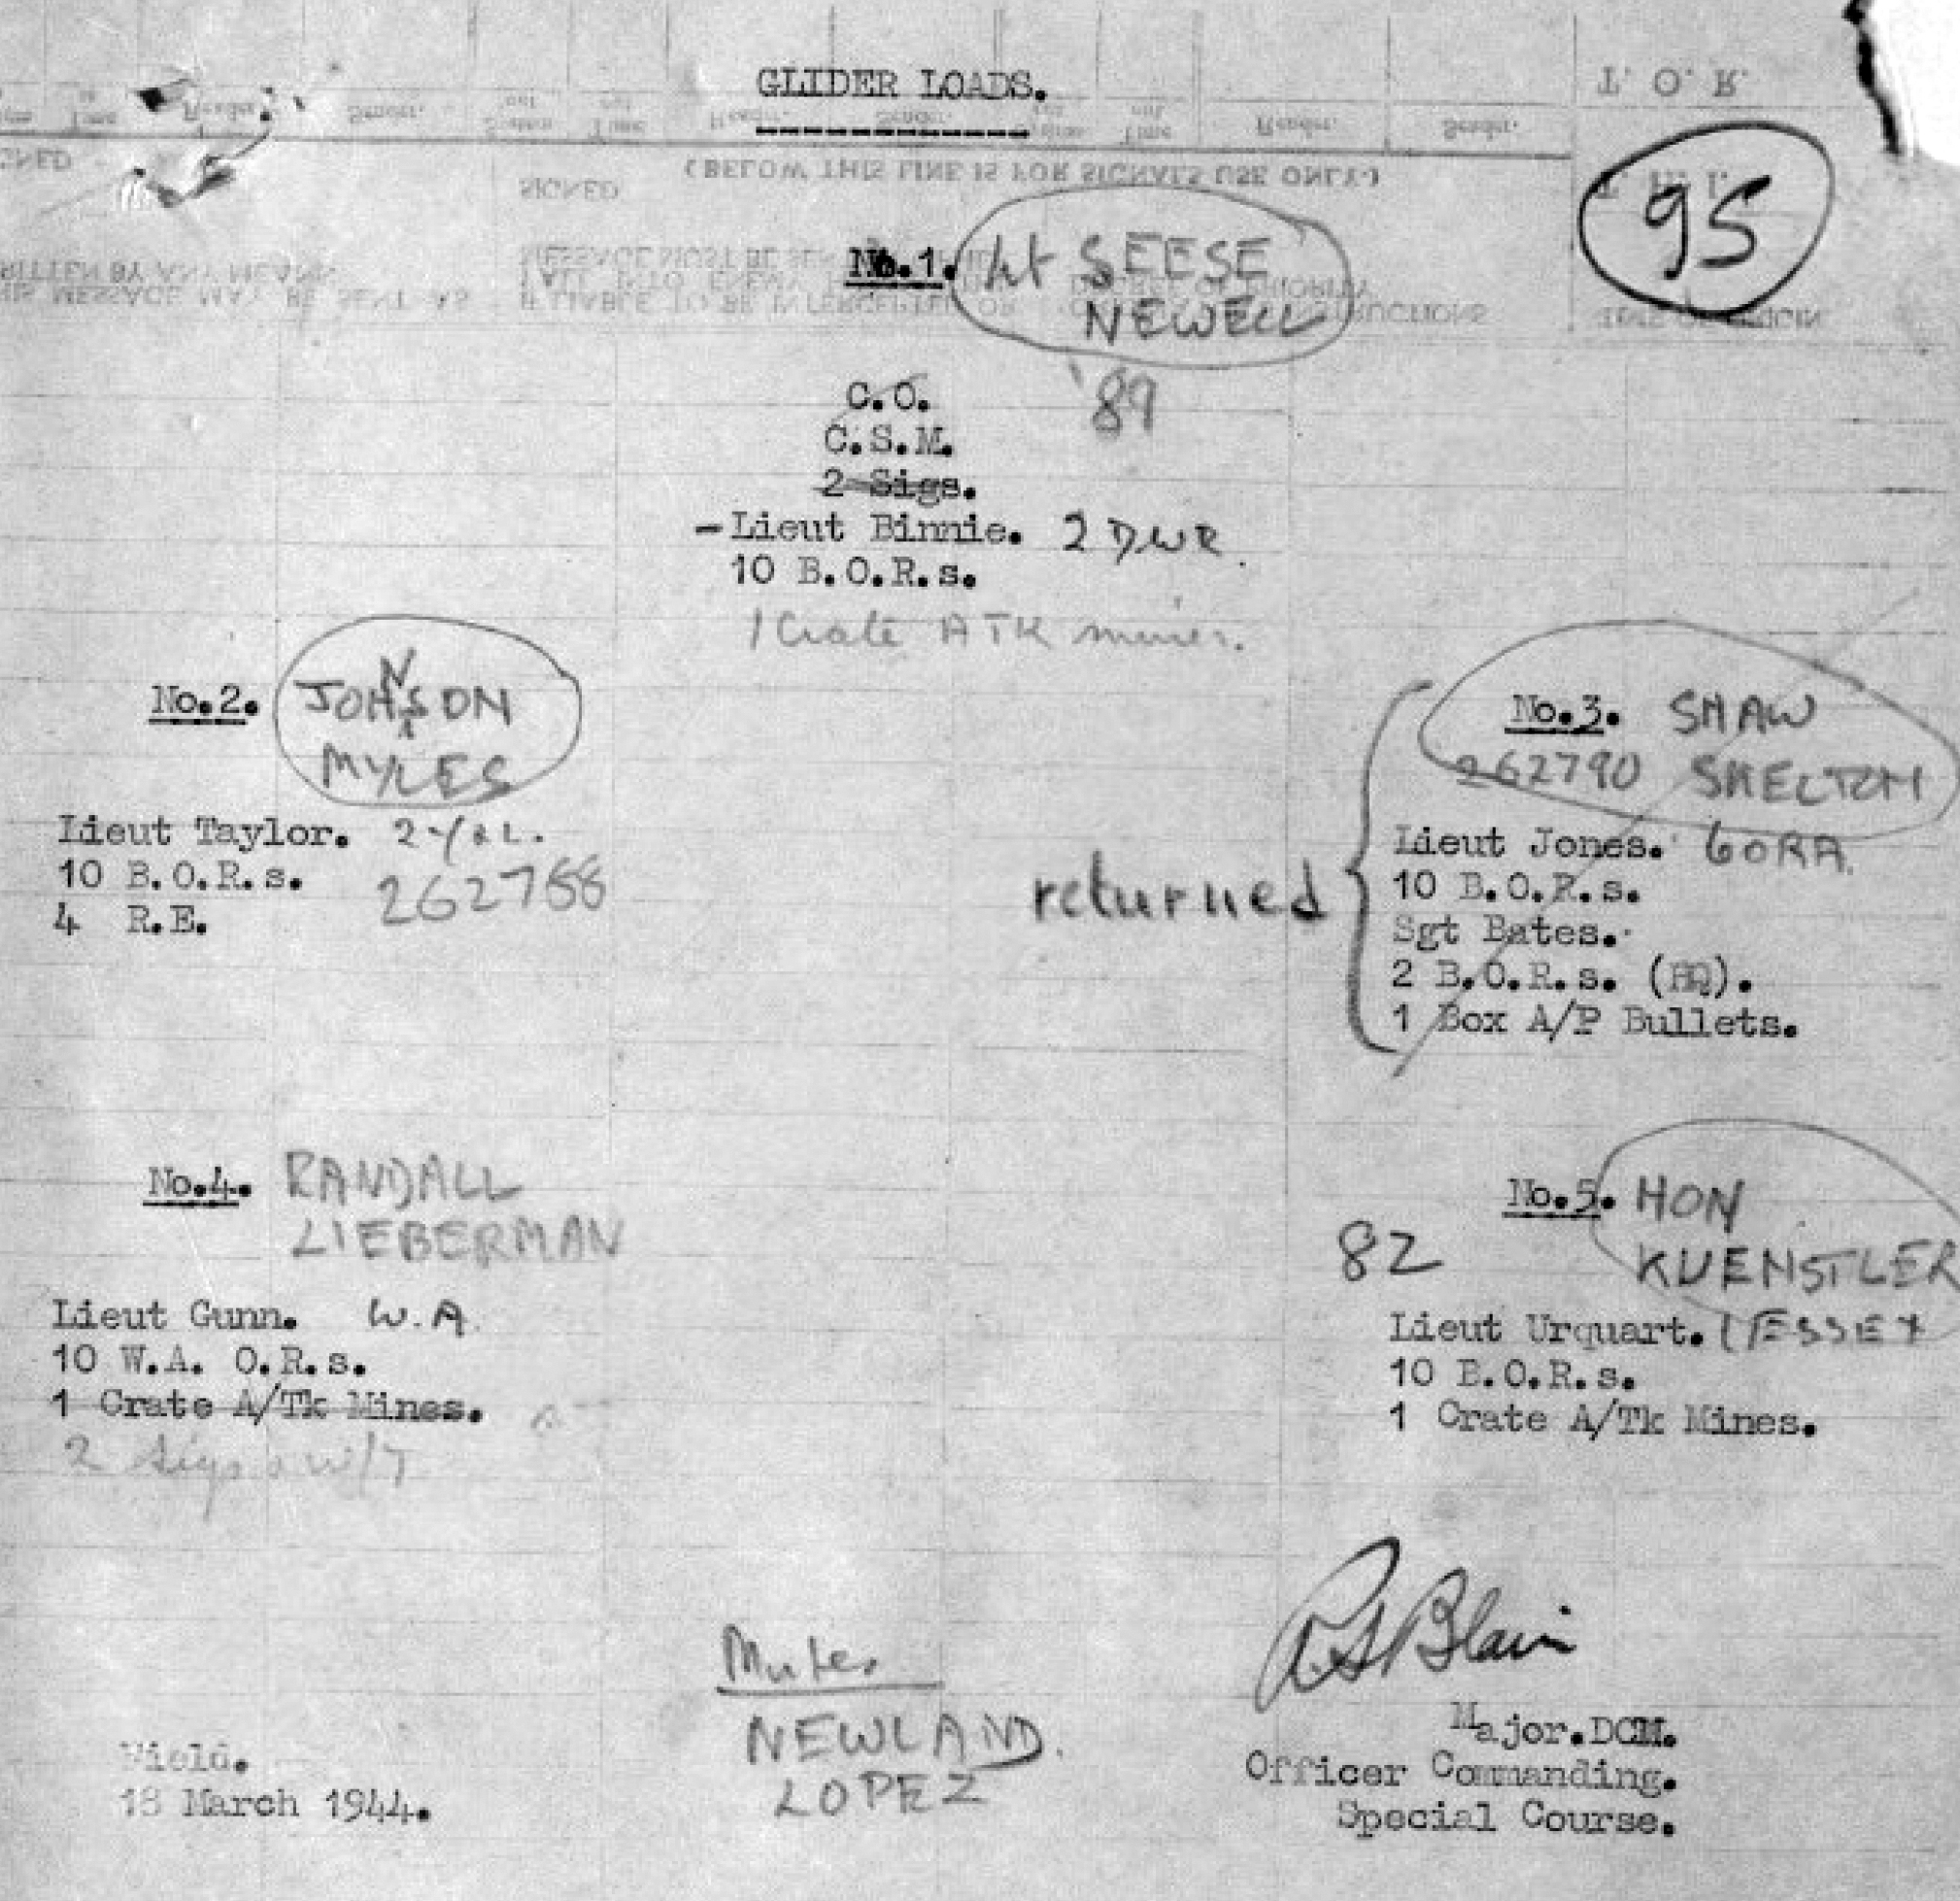 GLIDER LOADS.
T. O. R.
(BELOW THIS LINE IS FOR SIGNALS USE ONLY.)
SIGNED
95
No.1. Lt SEESE
NEWELL
C.O. '89
C.S.M.
2 Sigs.
-Lieut Binnie. 2 DWR.
10 B.O.R.s.
1 Crate ATK mines.
No.2. JOHNSON
MYLES
Lieut Taylor. 2 Y&L.
10 B.O.R.s. 262788
4 R.E.
No.3. SHAW
262790 SHELTON
returned
Lieut Jones. 60RA.
10 B.O.R.s.
Sgt Bates.
2 B.O.R.s. (HQ).
1 Box A/P Bullets.
No.4. RANDALL
LIEBERMAN
Lieut Gunn. W.A.
10 W.A. O.R.s.
1 Crate A/Tk Mines.
2 Sigs & W/T
No.5. HON
82 KUENSTLER
Lieut Urquart. 1 ESSEX
10 B.O.R.s.
1 Crate A/Tk Mines.
Mules
NEWLAND.
LOPEZ
Blain
Major.DCM.
Officer Commanding.
Special Course.
Field.
18 March 1944.